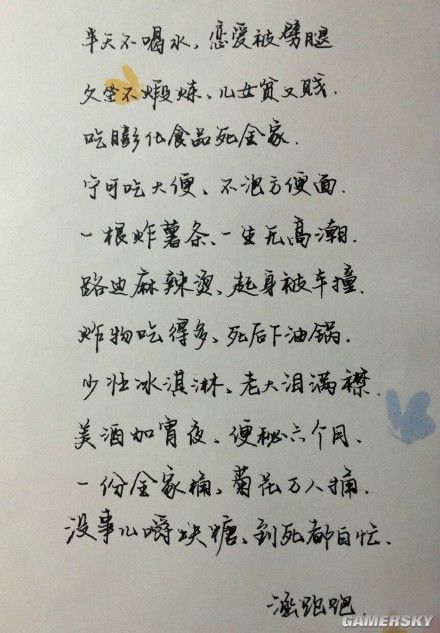 半天不喝水、恋爱被劈腿
久坐不煅炼、儿女贫又贱.
吃膨化食品死全家.
宁可吃大便、不泡方便面.
一根炸薯条、一生无高潮.
路边麻辣烫、起身被车撞.
炸物吃得多、死后下油锅.
少壮冰淇淋、老大泪满襟.
美酒加宵夜、便秘六个月.
一份全家桶、菊花万人捅.
没事儿嚼块糖、到死都白忙.
GAMERSKY